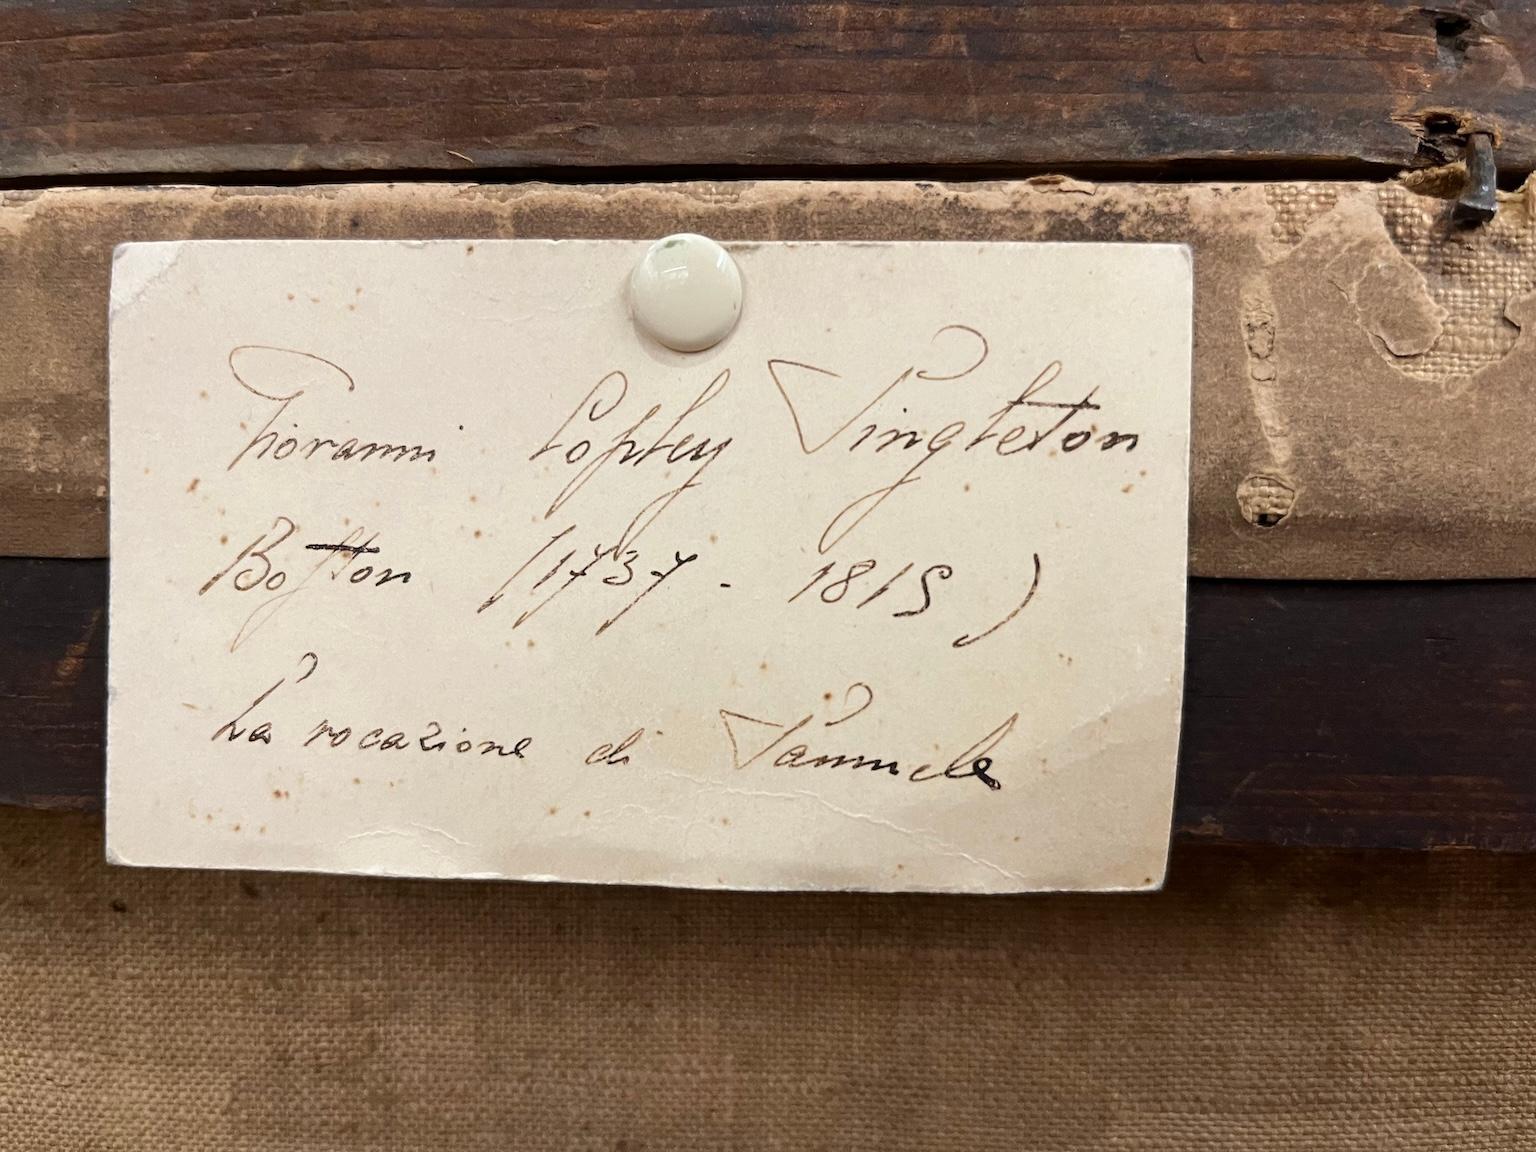 Giovanni Copley Singleton
Boſton (1737 - 1815)
La vocazione di Samuele